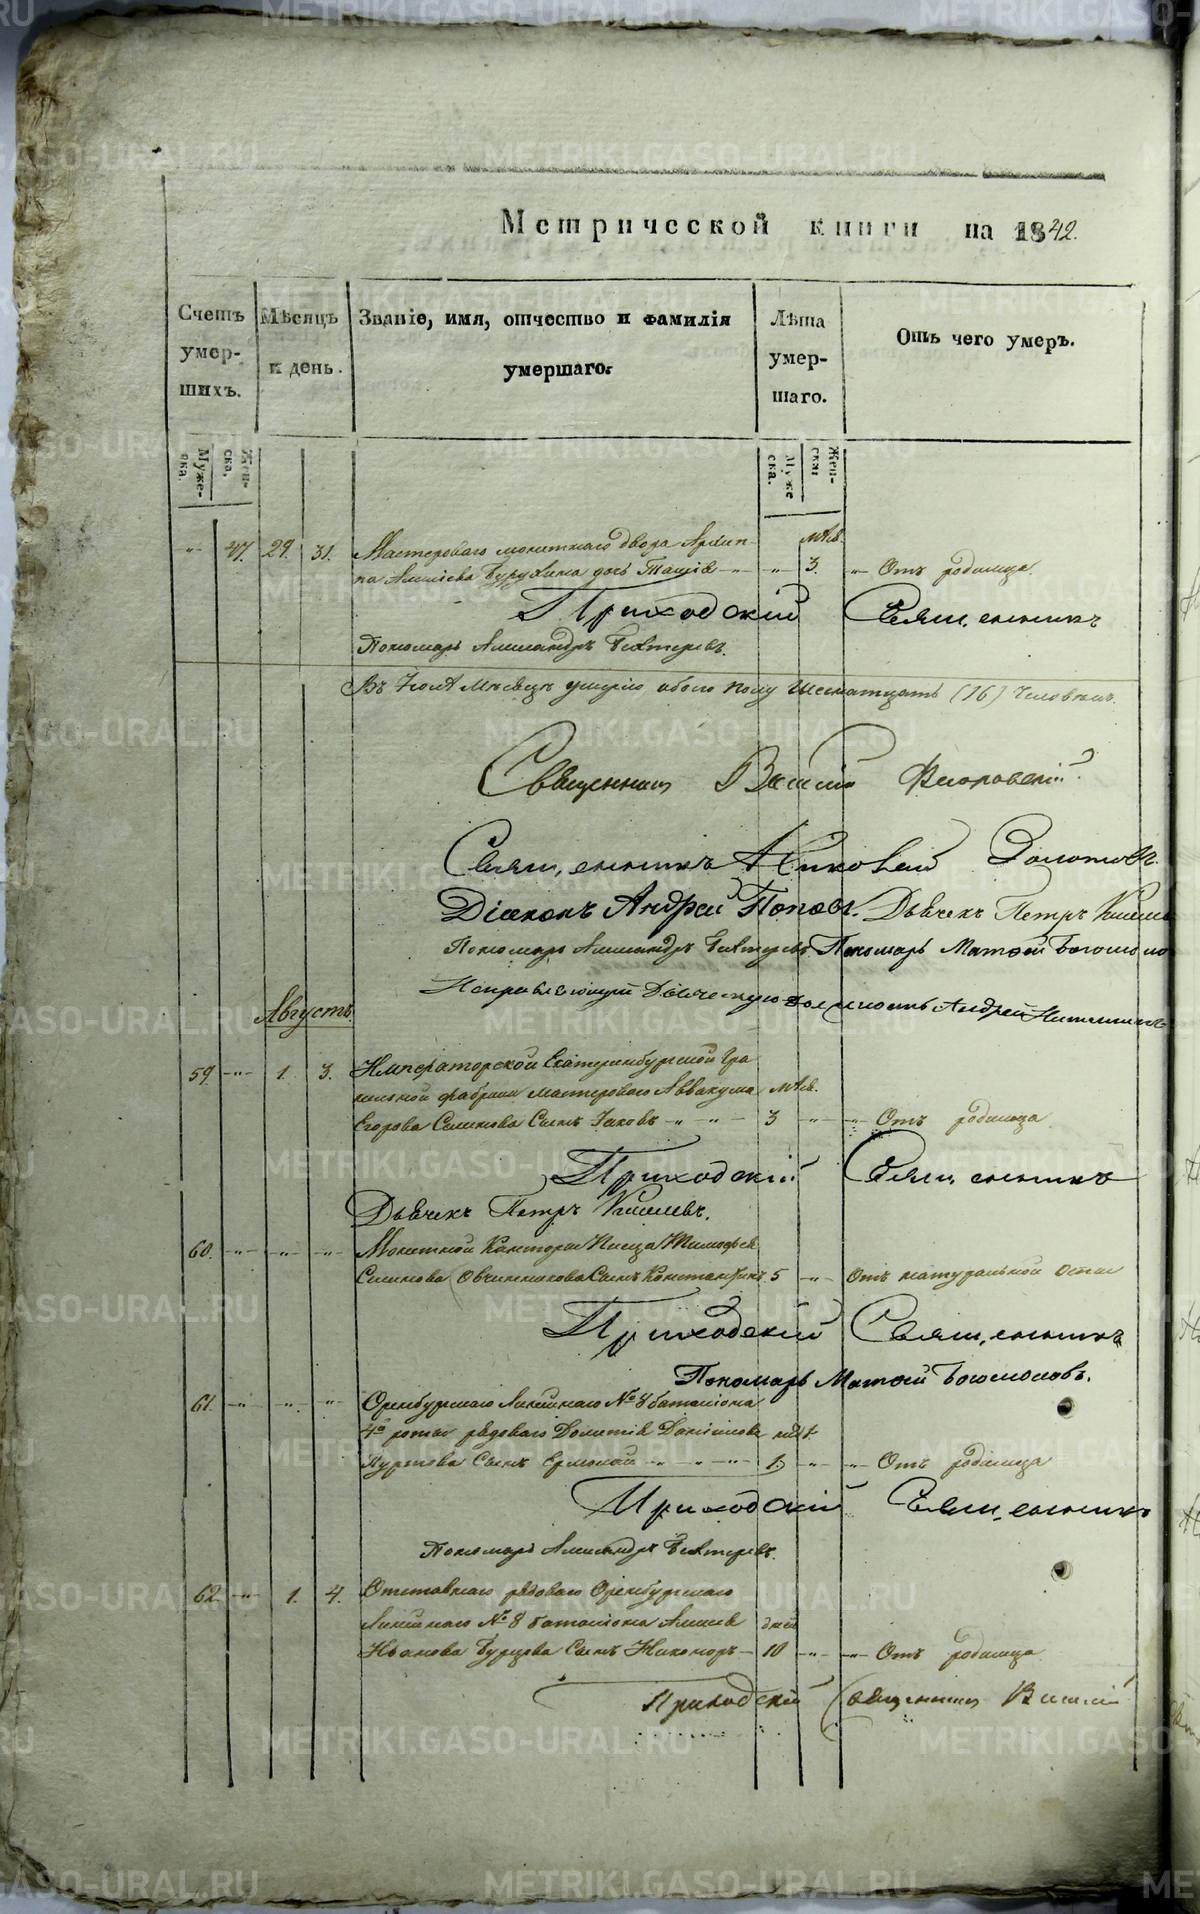 Метрической книги на 1842.
Счетъ умер-шихъ.
Мѣсяцъ и день.
Званіе, имя, отчество и фамилія умершаго.
Лѣта умер-шаго.
Отъ чего умеръ.
Муже-ска.
Жен-ска.
Муже ска.
Жен-ски
" 47. 29. 31. Мастероваго монетнаго двора Архип- мѣс.
па Алексѣева дочь " " 3. " Отъ родимца.
Приходскій Священникъ
Пономарь Александръ Бехтеревъ.
Въ Іюлѣ Мѣсяцѣ умерло обоего полу Шестнатцать (16) Человѣкъ.
Священникъ Василій Флоровскій.
Священникъ Николай Золотовъ
Діаконъ Андрей Поповъ. Дьячекъ Петръ
Пономарь Александръ Бехтеревъ. Пономарь Матѳей
Исправляющій Дьяческую должность Андрей
Августъ.
59. " 1. 3. Императорской Екатеринбургской Гра
нильной фабрики мастероваго Аввакума мѣс.
Егорова Сынъ Іаковъ " " 3 " " Отъ родимца.
Приходскій Священникъ
Дьячекъ Петръ Киселевъ.
60. " " " Монетной Канторы Писца Тимофея
Овчинникова Сынъ Константинъ. 5 " Отъ натуральной Оспы
Приходскій Священникъ
Пономарь Матѳей Богомоловъ.
61. " " " Оренбургскаго Линейнаго № 8 баталіона
4й роты рядоваго Данилова
Сынъ Ермолай " " " 1. " " Отъ родимца
Приходскій Священникъ
Пономарь Александръ Бехтеревъ.
62. " 1. 4. Отставнаго рядоваго Оренбургскаго
Линейнаго № 8 баталіона дней
Иванова Бурцова Сынъ Никаноръ 10 " " Отъ родимца
Приходскій Священникъ Василій
METRIKI.GASO-URAL.RU